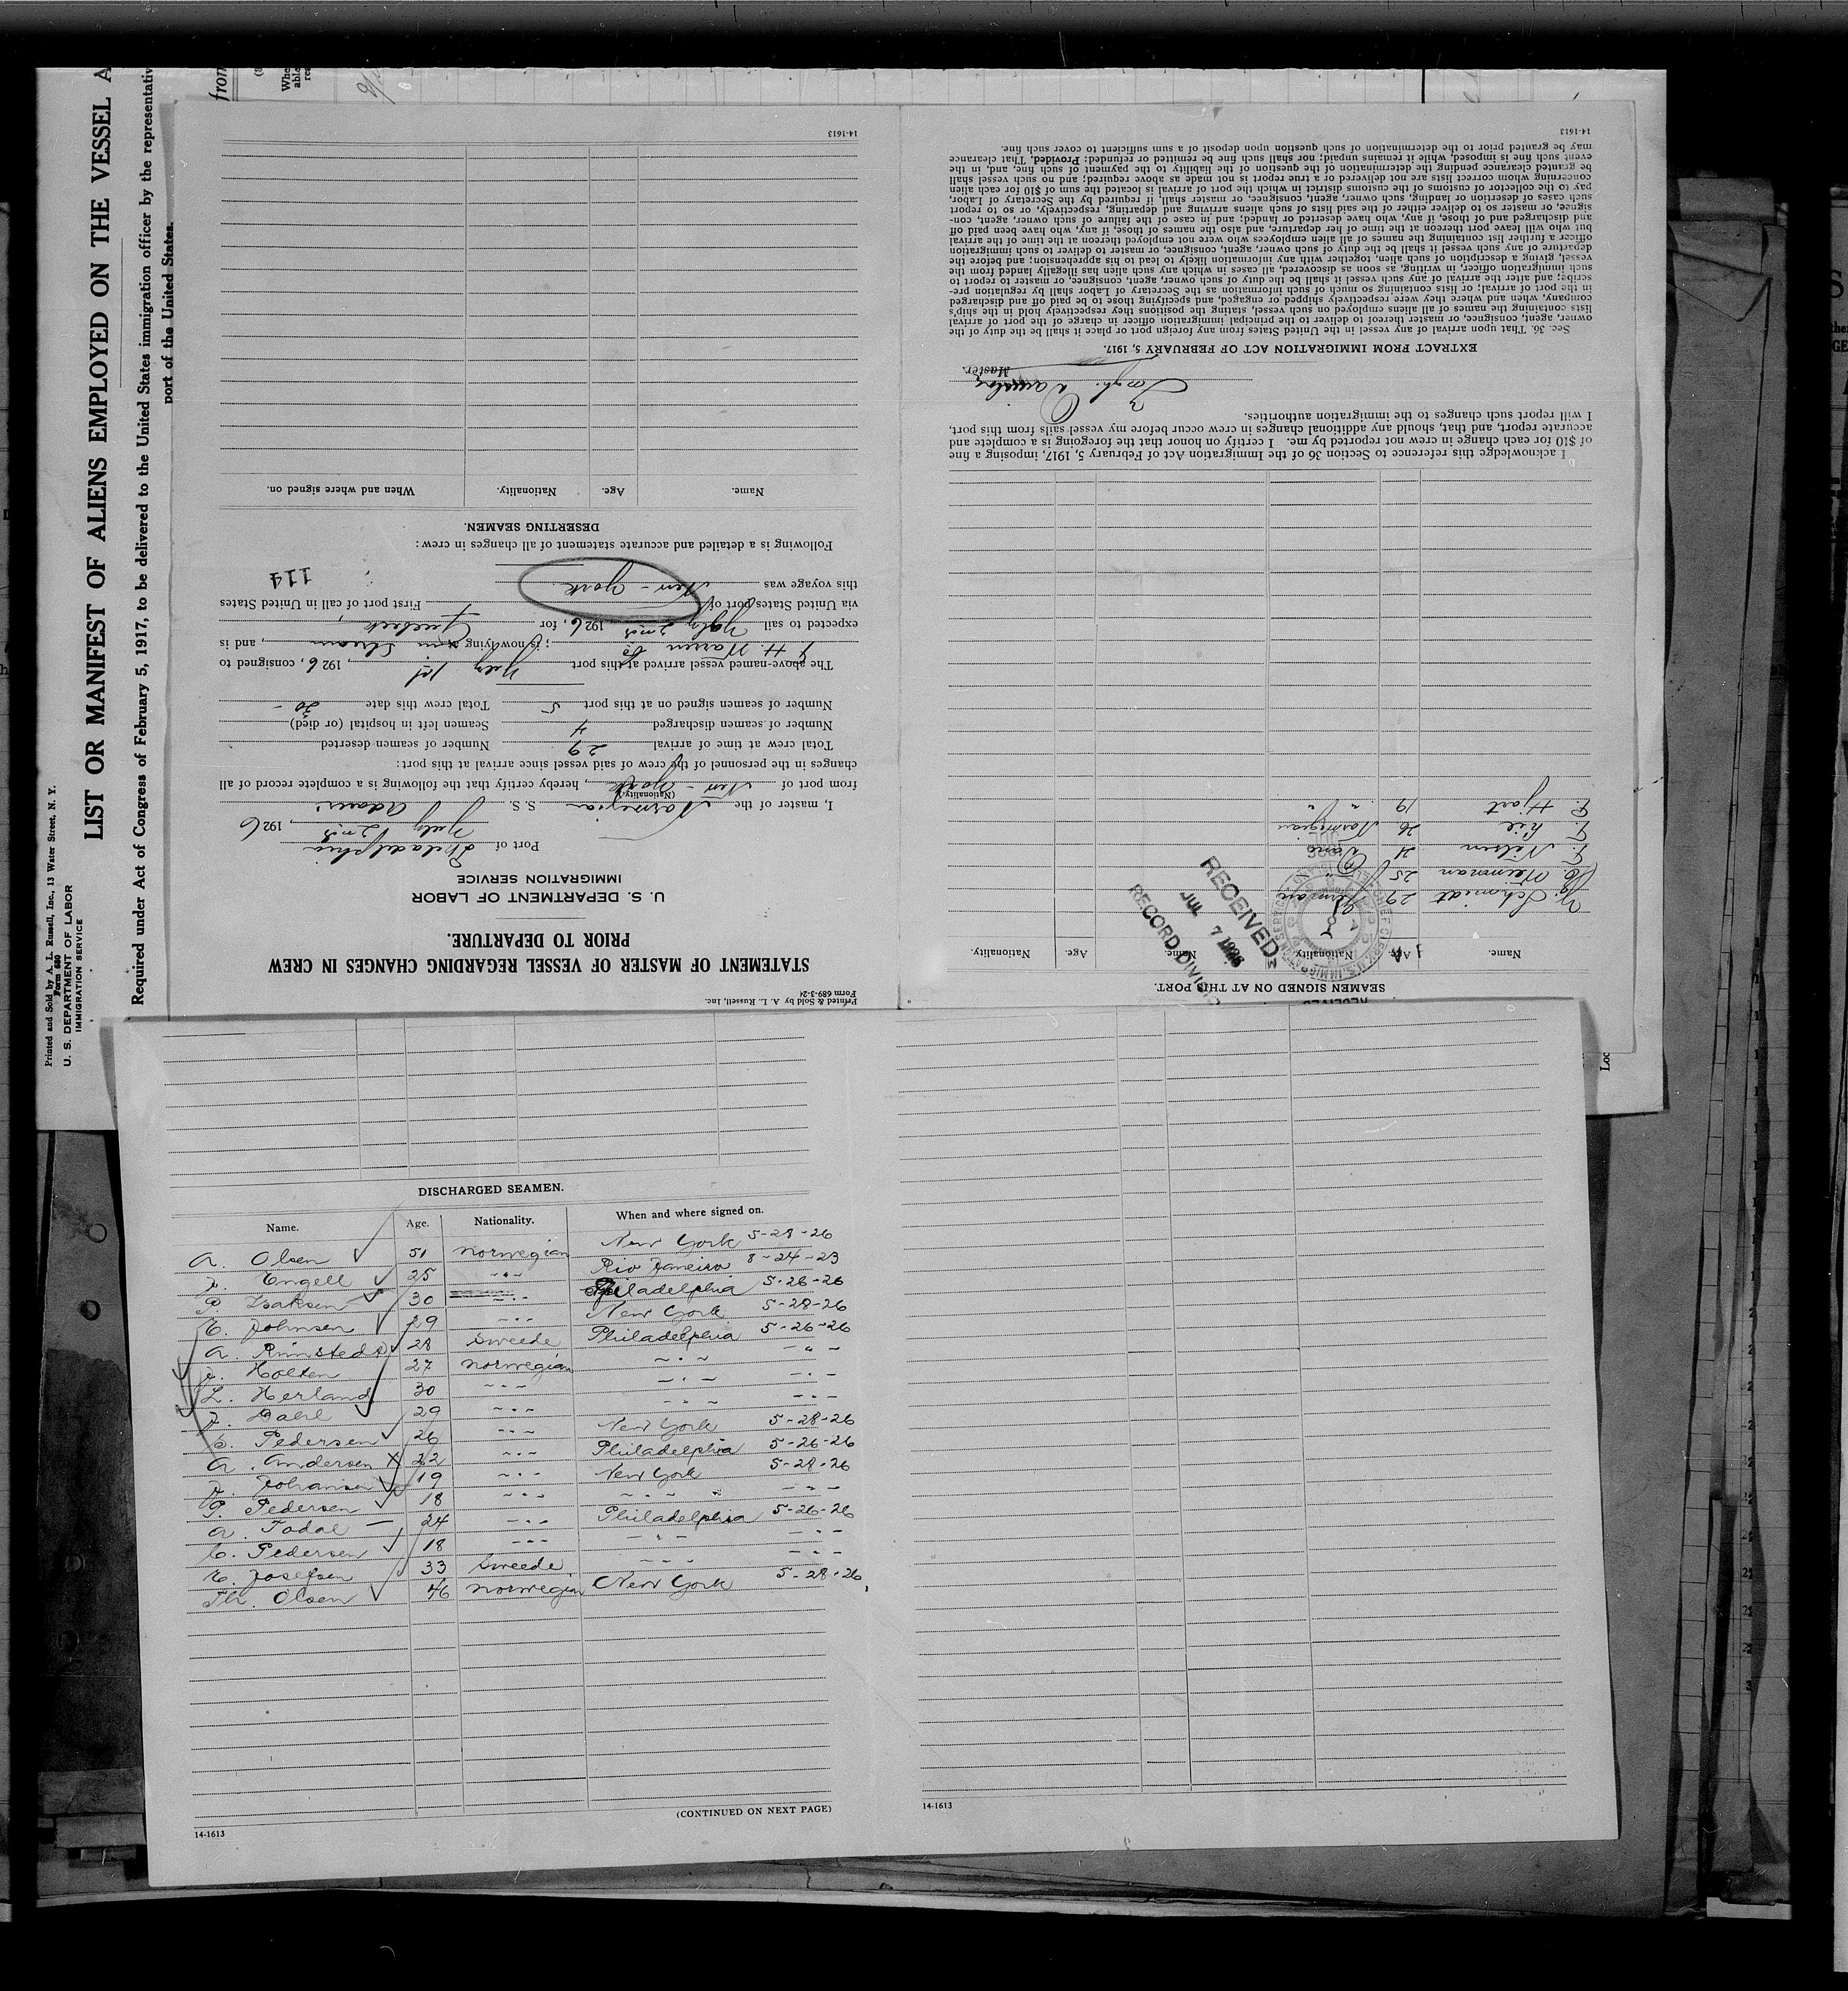 Printed and Sold by A. L. Russell, Inc., 13 Water Street, N. Y.
Form 680
U. S. DEPARTMENT OF LABOR
IMMIGRATION SERVICE
LIST OR MANIFEST OF ALIENS EMPLOYED ON THE VESSEL A
Required under Act of Congress of February 5, 1917, to be delivered to the United States immigration officer by the representativ
port of the United States.
from
Printed & Sold by A. L. Russell, Inc.
Form 689-3-24
STATEMENT OF MASTER OF VESSEL REGARDING CHANGES IN CREW
PRIOR TO DEPARTURE.
U. S. DEPARTMENT OF LABOR
IMMIGRATION SERVICE
Port of Philadelphia
July 2nd, 1926
I, master of the Norwegian S. S.
(Nationality.)
from port of New-York, hereby certify that the following is a complete record of all
changes in the personnel of the crew of said vessel since arrival at this port:
Total crew at time of arrival 29 Number of seamen deserted
Number of seamen discharged 4 Seamen left in hospital (or died)
Number of seamen signed on at this port 5 Total crew this date 30 -
The above-named vessel arrived at this port July 1st, 1926, consigned to
H. Warren Co; is now lying in Stream, and is
expected to sail July 2nd 1926, for
via United States port of First port of call in United States
this voyage was New-York 114
Following is a detailed and accurate statement of all changes in crew:
DESERTING SEAMEN.
Name. Age. Nationality. When and where signed on.
14-1613
SEAMEN SIGNED ON AT THIS PORT.
Name. Age. Nationality. Name. Age. Nationality.
Schmidt 29 German
25 "
Nelsen 21 Dane
26 Norwegian
Hjort 19 "
RECEIVED
JUL 7 1926
RECORD DIVISION
I acknowledge this reference to Section 36 of the Immigration Act of February 5, 1917, imposing a fine
of $10 for each change in crew not reported by me. I certify on honor that the foregoing is a complete and
accurate report, and that, should any additional changes in crew occur before my vessel sails from this port,
I will report such changes to the immigration authorities.
Master.
EXTRACT FROM IMMIGRATION ACT OF FEBRUARY 5, 1917.
Sec. 36. That upon arrival of any vessel in the United States from any foreign port or place it shall be the duty of the
owner, agent, consignee, or master thereof to deliver to the principal immigration officer in charge of the port of arrival
lists containing the names of all aliens employed on such vessel, stating the positions they respectively hold in the ship's
company, when and where they were respectively shipped or engaged, and specifying those to be paid off and discharged
in the port of arrival; or lists containing so much of such information as the Secretary of Labor shall by regulation pre-
scribe; and after the arrival of any such vessel it shall be the duty of such owner, agent, consignee, or master to report to
such immigration officer, in writing, as soon as discovered, all cases in which any such alien has illegally landed from the
vessel, giving a description of such alien, together with any information likely to lead to his apprehension; and before the
departure of any such vessel it shall be the duty of such owner, agent, consignee, or master to deliver to such immigration
officer a further list containing the names of all alien employees who were not employed thereon at the time of the arrival
but who will leave port thereon at the time of her departure, and also the names of those, if any, who have been paid off
and discharged and of those, if any, who have deserted or landed; and in case of the failure of such owner, agent, con-
signee, or master so to deliver either of the said lists of such aliens arriving and departing, respectively, or so to report
such cases of desertion or landing, such owner, agent, consignee, or master shall, if required by the Secretary of Labor,
pay to the collector of customs of the customs district in which the port of arrival is located the sum of $10 for each alien
concerning whom correct lists are not delivered or a true report is not made as above required; and no such vessel shall
be granted clearance pending the determination of the question of the liability to the payment of such fine, and, in the
event such fine is imposed, while it remains unpaid; nor shall such fine be remitted or refunded: Provided, That clearance
may be granted prior to the determination of such question upon deposit of a sum sufficient to cover such fine.
14-1613
DISCHARGED SEAMEN.
Name. Age. Nationality. When and where signed on.
A. Olsen 51 Norwegian New York 5-28-26
J. Engell 25 -"- Rio Janeiro 8-24-23
P. Isaksen 30 -"- Philadelphia 5-26-26
E. Johnsen 29 -"- New York 5-28-26
A. Rinnsted 28 Sweede Philadelphia 5-26-26
J. Holten 27 Norwegian -"- -"-
L. Herland 30 -"- -"- -"-
J. Dahl 29 -"- -"- -"-
C. Pedersen 26 -"- New York 5-28-26
A. Andersen 22 -"- Philadelphia 5-26-26
J. Johansen 19 -"- New York 5-28-26
P. Pedersen 18 -"- -"- -"-
A. Todal 24 -"- Philadelphia 5-26-26
C. Pedersen 18 -"- -"- -"-
E. Josefsen 33 Sweede -"- -"-
Th. Olsen 46 Norwegian New York 5-28-26
(CONTINUED ON NEXT PAGE)
14-1613
14-1613